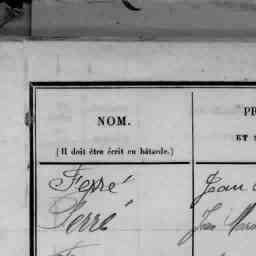 NOM. PR
(Il doit être écrit en bâtarde.) ET
Ferré Jean
Serré Jean Marie